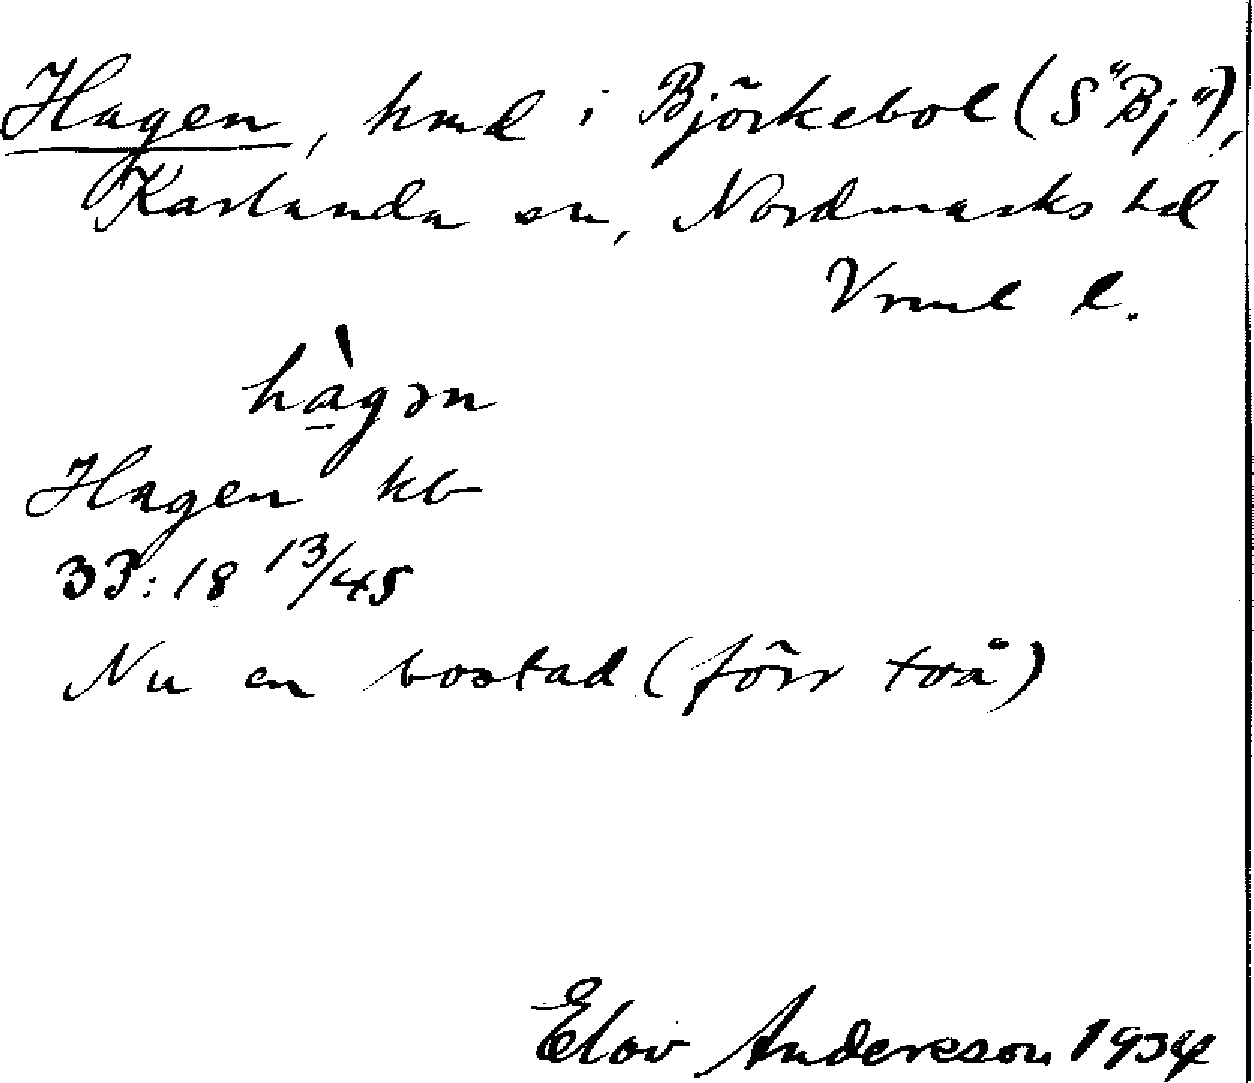 Hagen, hmd i Björkebol (S "Bj"),
Karlanda sn, Nordmarks hd
Vrml l.
hàgən
Hagen kb
33:18 13/45
Nu en bostad (förr två)
Elov Andersson 1934